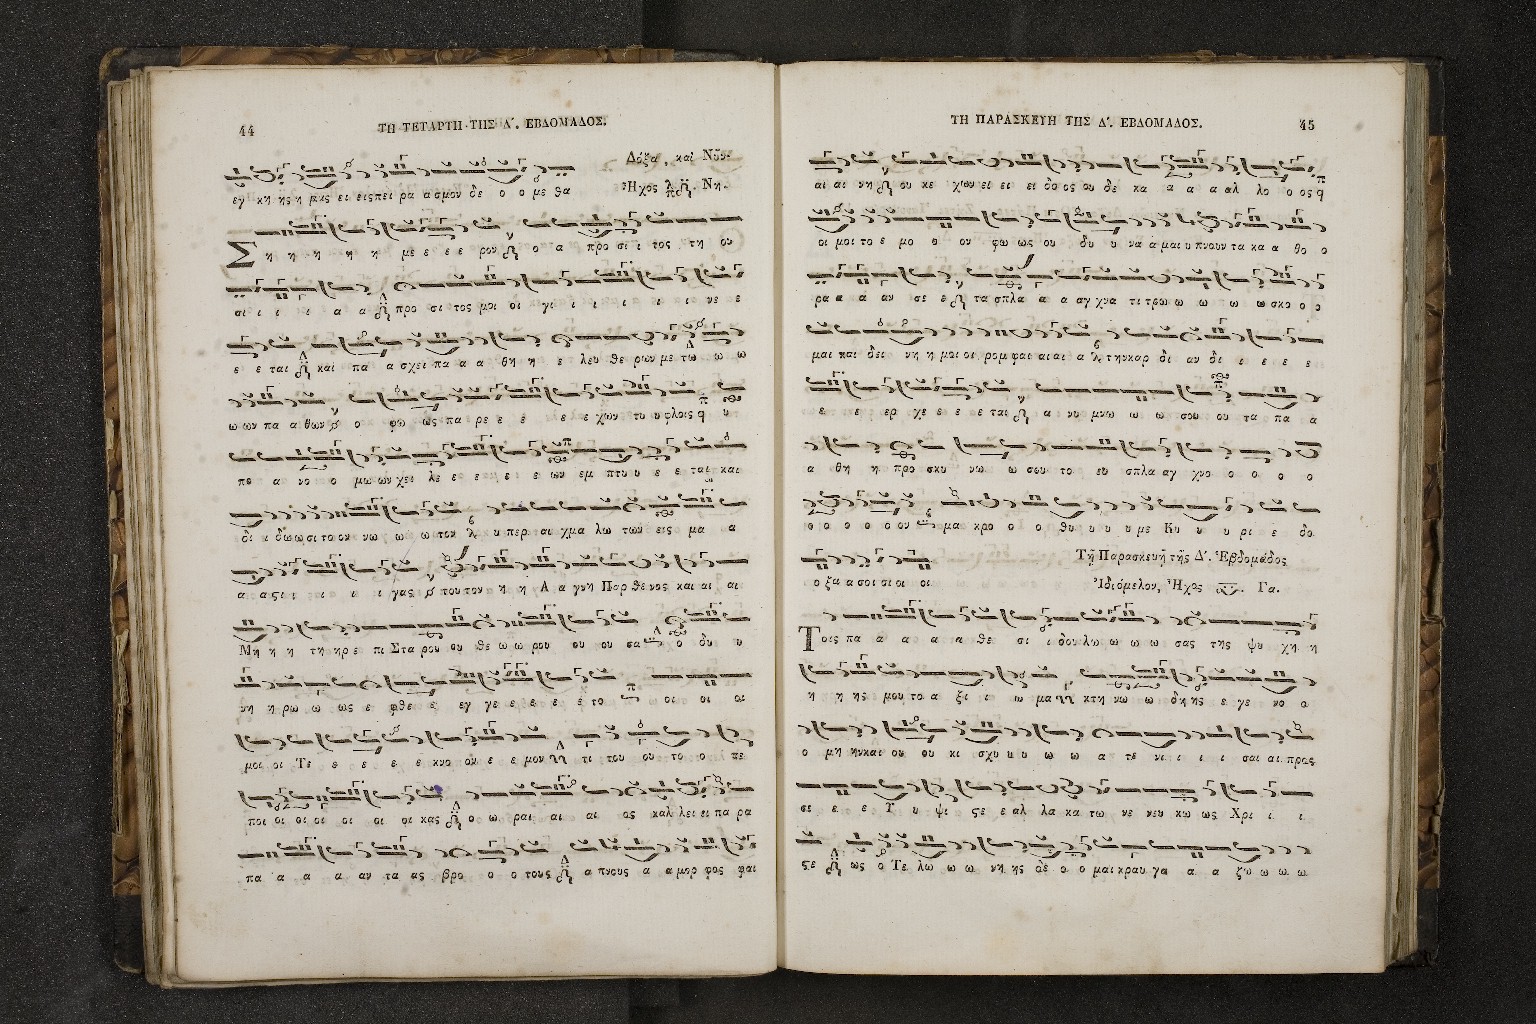 44
ΤΗ ΤΕΤΑΡΤΗ ΤΗΣ Δ΄. ΕΒΔΟΜΑΔΟΣ.
Δόξα, και Νῦν.
εγ κη ης η μας ει εις πει ρα α σμον δε ο ο με θα Ἦχος Νη.
Σ η η η η η με ε ε ε ρον ο α προ σι ι τος τη ου
σι ι ι ι α α προ σι τος μοι οι γι ι ι ι ι ι νε ε
ε ε ται και πα α σχει πα α α θη η ε λευ θε ρων με τω ω ω
ω ων πα α θων ο φω ως πα ρε ε ε ε ε χων τυ υ φλοις υ
πο α νο ο μω ων χει λε ε ε ε ε ε ων εμ πτυ υ ε ε ται και
δι ι δω ω σι το ον νω ω ω ω τον υ περ αι χμα λω των εις μα α
α α ςι ι ι ι ι γας του τον η η Α α γνη Παρ θε νος και αι αι
Μη η η τη ηρ ε πι Στα ρου ου θε ω ω ρου ου ου σα ο δυ υ
νη η ρω ω ως ε φθε ε εγ γε ε ε ε ε το οι οι οι
μοι οι Τε ε ε ε ε κνο ον ε ε μον τι του ου το ο πε
ποι οι οι οι οι οι οι κας ο ω ραι αι αι ος καλ λει ει πα ρα
πα α α α αν τα ας βρο ο ο τους α πνους α α μορ φος φαι
ΤΗ ΠΑΡΑΣΚΕΥΗ ΤΗΣ Δ΄. ΕΒΔΟΜΑΔΟΣ.
45
αι αι νη ου κε χων ει ει ει δο ος ου δε κα α α α αλ λο ο ος
οι μοι το ε μο ο ον φω ως ου δυ υ να α μαι υ πνουν τα κα α θο ο
ρα α α αν σε ε τα σπλα α α αγ χνα τι τρω ω ω ω ω σκο ο ο
μαι και δει νη η μοι οι ρομ φαι αι αι α την καρ δι αν δι ι ε ε ε
ε ε ερ χε ε ε ε ται α νυ μνω ω ω ω σου ου τα πα α
α θη η προ σκυ νω ω σου το ευ σπλα αγ χνο ο ο ο ο
ο ο ο ο ο ον μα κρο ο ο θυ υ υ υ με Κυ υ υ ρι ε δο
Τῇ Παρασκευῇ τῆς Δ΄. Ἑβδομάδος
ο ξα α σοι σι οι οι Ἰδιόμελον, Ἦχος Γα.
Τοις πα α α α α θε σι ι δου λω ω ω ω σας της ψυ χη η
η η ης μου το α ξι ι ω μα κτη νω ω δη ης ε γε νο ο
ο μη ην και ου ου κι σχυ υ υ ω ω α τε νι ι ι ι σαι αι προς
σε ε ε Υ υ ψι ςε ε αλ λα κα τω νε νευ κω ως Χρι ι ι
ςε ως ο Τε λω ω ω νη ης δε ο ο μαι κραυ γα α α ζω ω ω ω